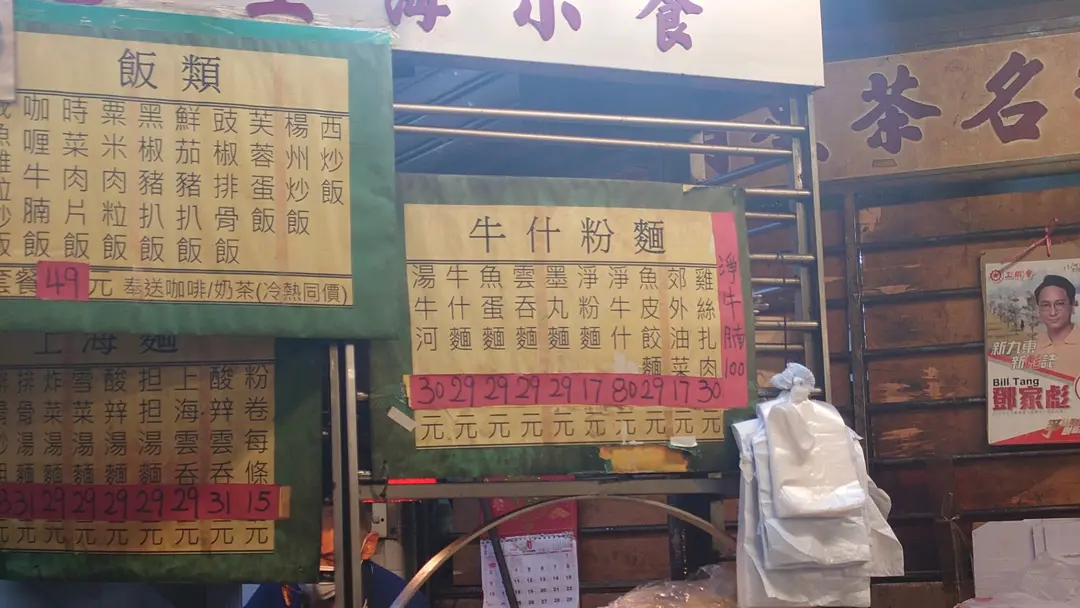 上海小食
飯類
咖喱牛腩飯
時菜肉片飯
粟米肉粒飯
黑椒豬扒飯
鮮茄豬扒飯
豉椒排骨飯
芙蓉蛋飯
楊州炒飯
西炒飯
套餐49元 奉送咖啡/奶茶(冷熱同價)
上海麵
排骨湯麵
炸菜湯麵
雪菜湯麵
酸辣湯麵
担担湯麵
上海雲吞
酸辣雲吞
粉卷每條
31 29 29 29 29 29 31 15
元 元 元 元 元 元 元 元
牛什粉麵
湯牛河
牛什麵
魚蛋麵
雲吞麵
墨丸麵
淨粉麵
淨牛什
魚皮餃麵
郊外油菜
雞絲扎肉
淨牛腩100
30 29 29 29 29 17 80 29 17 30
元 元 元 元 元 元 元 元 元
茶名
工聯會
新九東
新彪誌
Bill Tang
鄧家彪